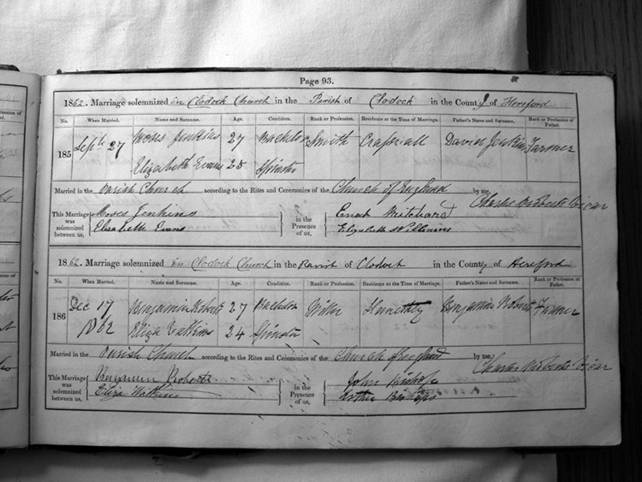 Page 93.
1862. Marriage solemnized in Clodock Church in the Parish of Clodock in the County of Hereford
No. When Married. Name and Surname. Age. Condition. Rank or Profession. Residence at the Time of Marriage. Father's Name and Surname. Rank or Profession of Father.
185 Sept 27 Moses Jenkins 27 Bachelor Smith David Jenkin Farmer
Elizabeth Evans 28 Spinster
Married in the Parish Church according to the Rites and Ceremonies of the Church of England by me,
Charles Vicar
This Marriage was solemnized between us, Moses Jenkins in the Presence of us, Pritchard
Elizabeth Evans Elizabeth Williams
1862. Marriage solemnized in Clodock Church in the Parish of Clodock in the County of Hereford
No. When Married. Name and Surname. Age. Condition. Rank or Profession. Residence at the Time of Marriage. Father's Name and Surname. Rank or Profession of Father.
186 Dec 17 Benjamin Roberts 27 Bachelor Miller Benjamin Roberts Farmer
1862 Eliza Watkins 24 Spinster
Married in the Parish Church according to the Rites and Ceremonies of the Church of England by me,
Charles Vicar
This Marriage was solemnized between us, Benjamin Roberts in the Presence of us, John
Eliza Watkins